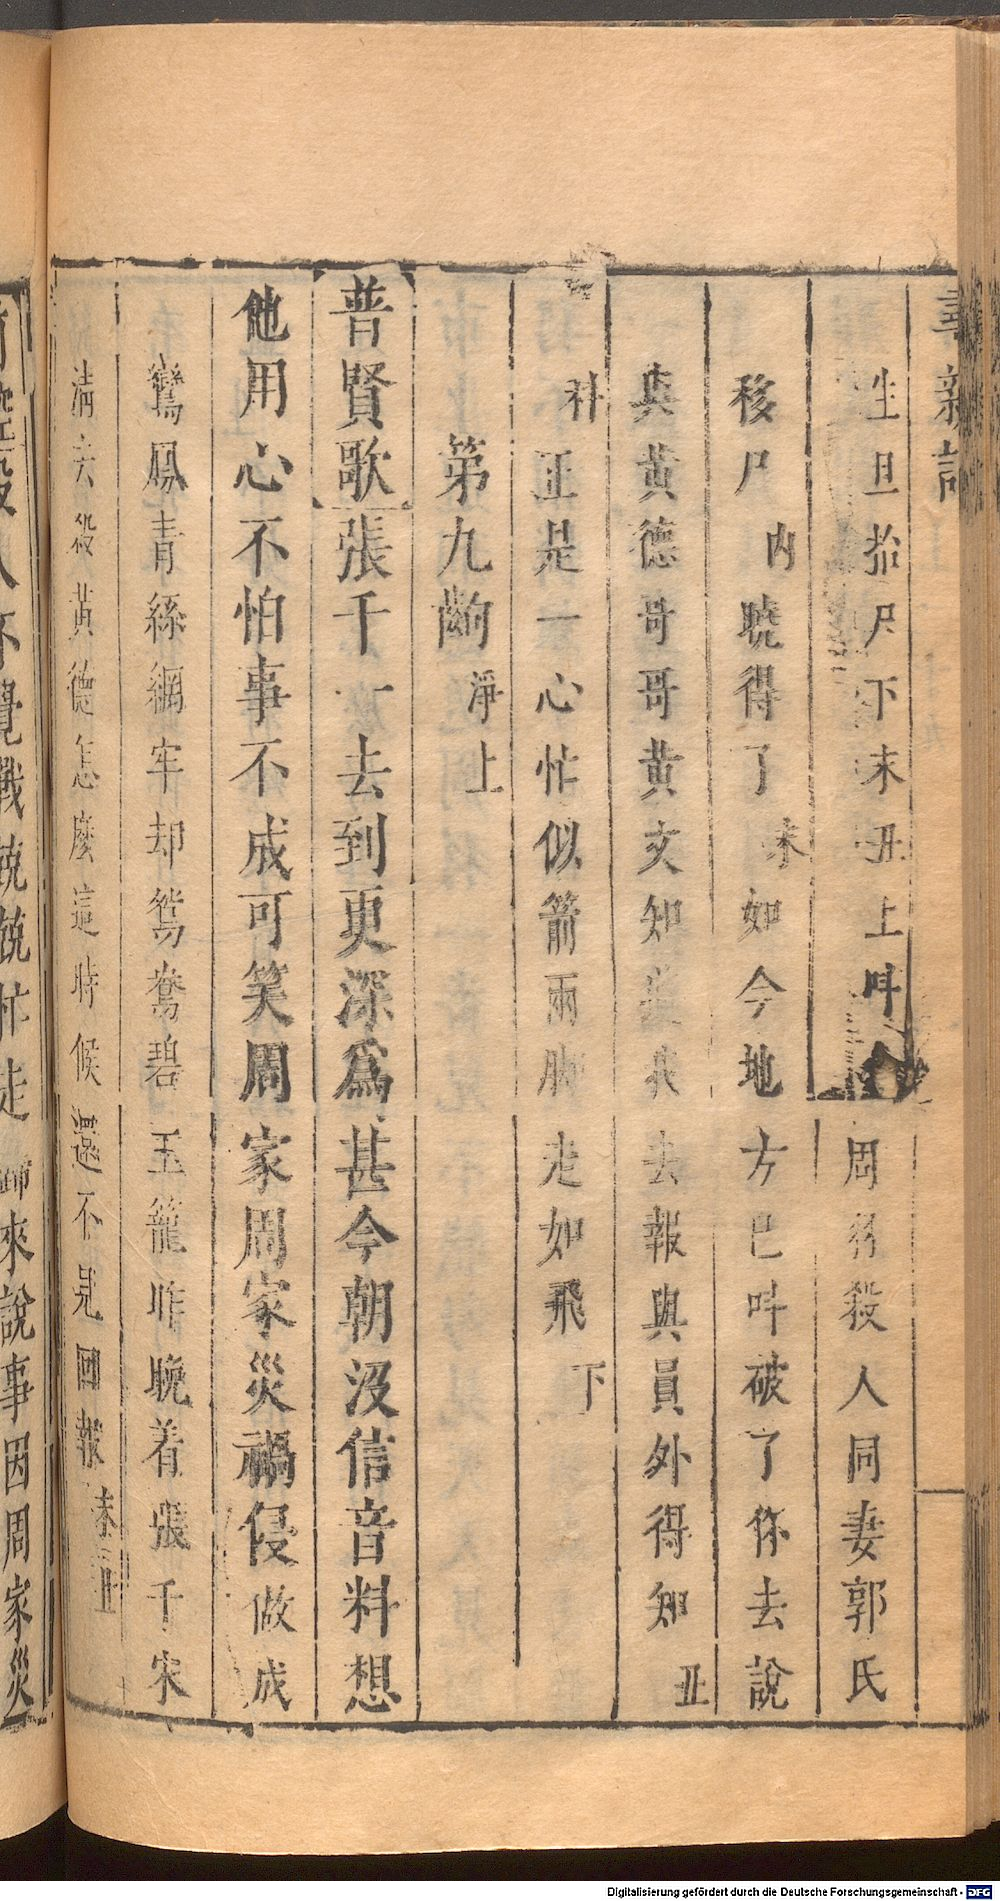 生旦抬尸下末丑上呌 周羽殺人同妻郭氏
移尸 内 曉得了 末 如今地方已呌破了你去說
與黃德哥哥黃文知 我去報與員外得知 丑
科 正是一心忙似箭兩脚走如飛 下
第九齣 淨上
普賢歌 張千一去到更深爲甚今朝没信音料想
他用心不怕事不成可笑周家周家災禍侵做成
鸞鳳青絲網牢却鴛鴦碧玉籠昨晚着張千宋
清去殺黃德怎麽這時候還不見回報 末丑
人不覺戰兢兢忙走歸來說事因周家災
Digitalisierung gefördert durch die Deutsche Forschungsgemeinschaft - DFG